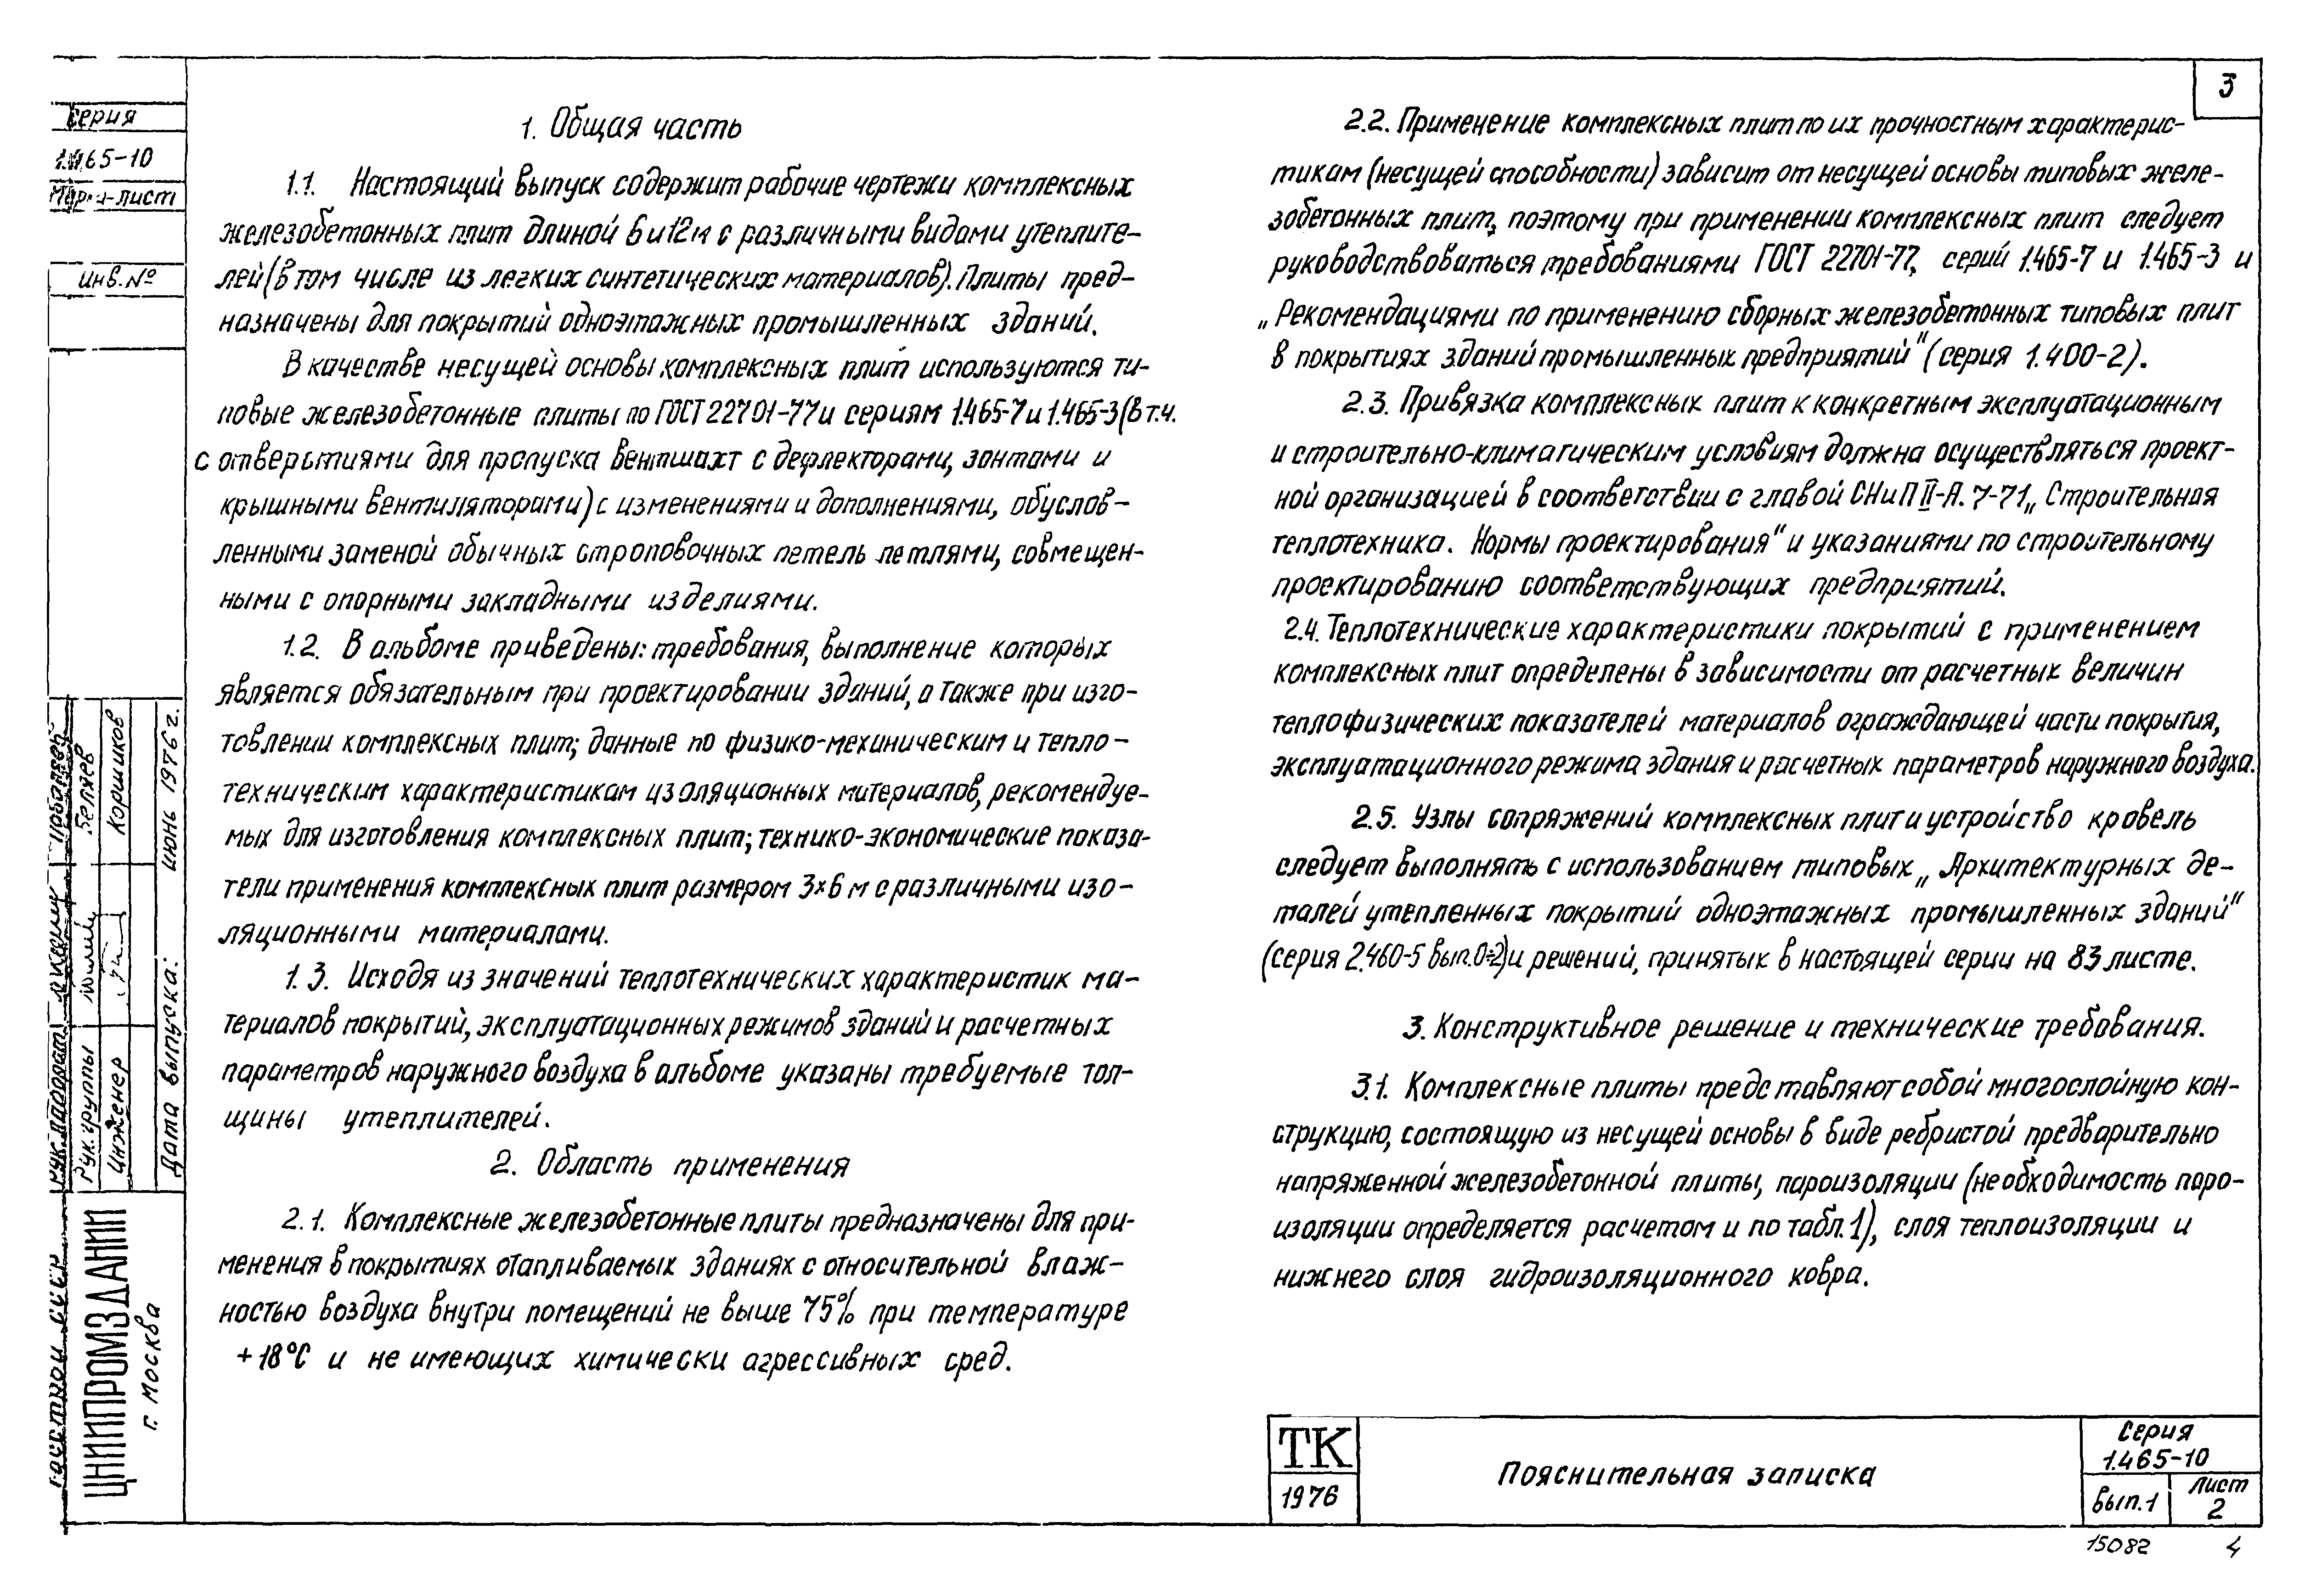 3
Серия
1.465-10
Марка-лист
Инв. №
Беляев
Коршиков
июнь 1976 г.
Рук. группы
Инженер
Дата выпуска:
ЦНИИПРОМЗДАНИЙ
г. Москва
1. Общая часть
1.1. Настоящий выпуск содержит рабочие чертежи комплексных
железобетонных плит длиной 6 и 12 м с различными видами утеплите-
лей (в том числе из легких синтетических материалов). Плиты пред-
назначены для покрытий одноэтажных промышленных зданий.
В качестве несущей основы комплексных плит используются ти-
повые железобетонные плиты по ГОСТ 22701-77 и сериям 1.465-7 и 1.465-3 (в т.ч.
с отверстиями для пропуска вентшахт с дефлекторами, зонтами и
крышными вентиляторами) с изменениями и дополнениями, обуслов-
ленными заменой обычных строповочных петель петлями, совмещен-
ными с опорными закладными изделиями.
1.2. В альбоме приведены: требования, выполнение которых
является обязательным при проектировании зданий, а также при изго-
товлении комплексных плит; данные по физико-механическим и тепло-
техническим характеристикам изоляционных материалов, рекомендуе-
мых для изготовления комплексных плит; технико-экономические показа-
тели применения комплексных плит размером 3×6 м с различными изо-
ляционными материалами.
1.3. Исходя из значений теплотехнических характеристик ма-
териалов покрытий, эксплуатационных режимов зданий и расчетных
параметров наружного воздуха в альбоме указаны требуемые тол-
щины утеплителей.
2. Область применения
2.1. Комплексные железобетонные плиты предназначены для при-
менения в покрытиях отапливаемых зданиях с относительной влаж-
ностью воздуха внутри помещений не выше 75% при температуре
+18°С и не имеющих химически агрессивных сред.
2.2. Применение комплексных плит по их прочностным характерис-
тикам (несущей способности) зависит от несущей основы типовых желе-
зобетонных плит, поэтому при применении комплексных плит следует
руководствоваться требованиями ГОСТ 22701-77, серий 1.465-7 и 1.465-3 и
„Рекомендациями по применению сборных железобетонных типовых плит
в покрытиях зданий промышленных предприятий" (серия 1.400-2).
2.3. Привязка комплексных плит к конкретным эксплуатационным
и строительно-климатическим условиям должна осуществляться проект-
ной организацией в соответствии с главой СНиП II-А. 7-71 „Строительная
теплотехника. Нормы проектирования" и указаниями по строительному
проектированию соответствующих предприятий.
2.4. Теплотехнические характеристики покрытий с применением
комплексных плит определены в зависимости от расчетных величин
теплофизических показателей материалов ограждающей части покрытия,
эксплуатационного режима здания и расчетных параметров наружного воздуха.
2.5. Узлы сопряжений комплексных плит и устройство кровель
следует выполнять с использованием типовых „Архитектурных де-
талей утепленных покрытий одноэтажных промышленных зданий"
(серия 2.460-5 вып.0÷2) и решений, принятых в настоящей серии на 83 листе.
3. Конструктивное решение и технические требования.
3.1. Комплексные плиты представляют собой многослойную кон-
струкцию, состоящую из несущей основы в виде ребристой предварительно
напряженной железобетонной плиты, пароизоляции (необходимость паро-
изоляции определяется расчетом и по табл. 1), слоя теплоизоляции и
нижнего слоя гидроизоляционного ковра.
ТК
1976
Пояснительная записка
Серия
1.465-10
Вып. 1
Лист
2
15082 4